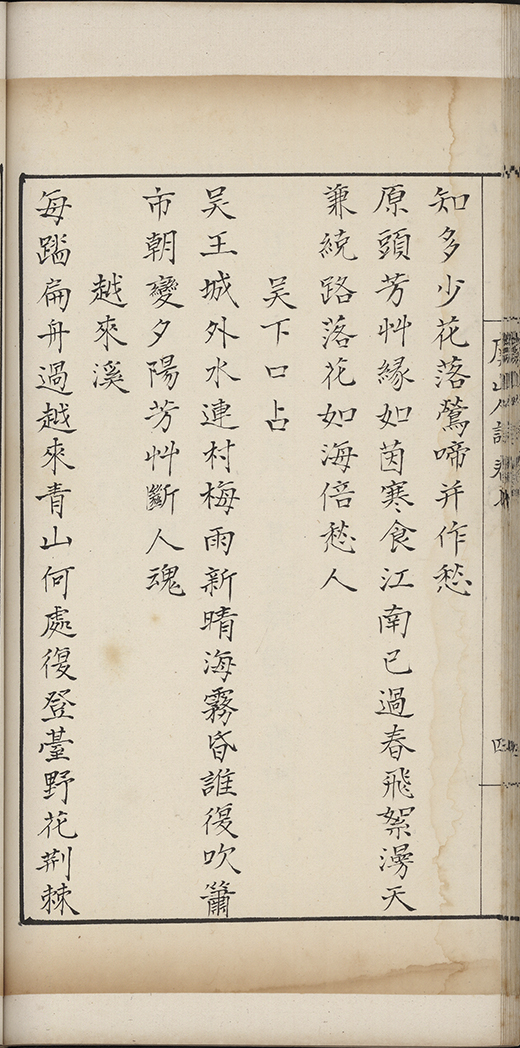 知多少花落鶯啼并作愁
原頭芳艸緣如茵寒食江南已過春飛絮漫天
兼繞路落花如海倍愁人
吴下口占
吴王城外水連村梅雨新晴海霧昏誰復吹簫
市朝變夕陽芳艸斷人魂
越來溪
每蹋扁舟過越來青山何處復登臺野花荆棘